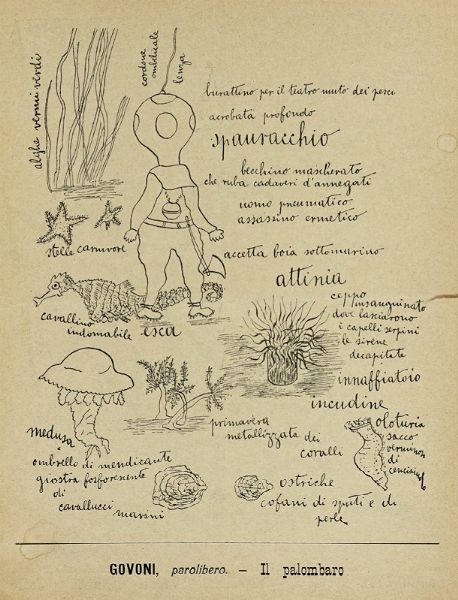 alghe vermi verdi
cordone
ombelicale
lenza
burattino per il teatro muto dei pesci
acrobata profondo
spauracchio
becchino mascherato
che ruba cadaveri d'annegati
uomo pneumatico
assassino ermetico
stelle carnivore
accetta boia sottomarino
attinia
ceppo
insanguinato
dove lasciarono
i capelli serpini
le sirene
decapitate
cavallino
indomabile
esca
innaffiatoio
incudine
primavera
metallizzata dei
coralli
oloturia
sacco
verminoso
di
medusa
ombrello di mendicante
giostra forforescente
di
cavallucci
marini
ostriche
cofani di sputi e di
perle
GOVONI, parolibero. — Il palombaro